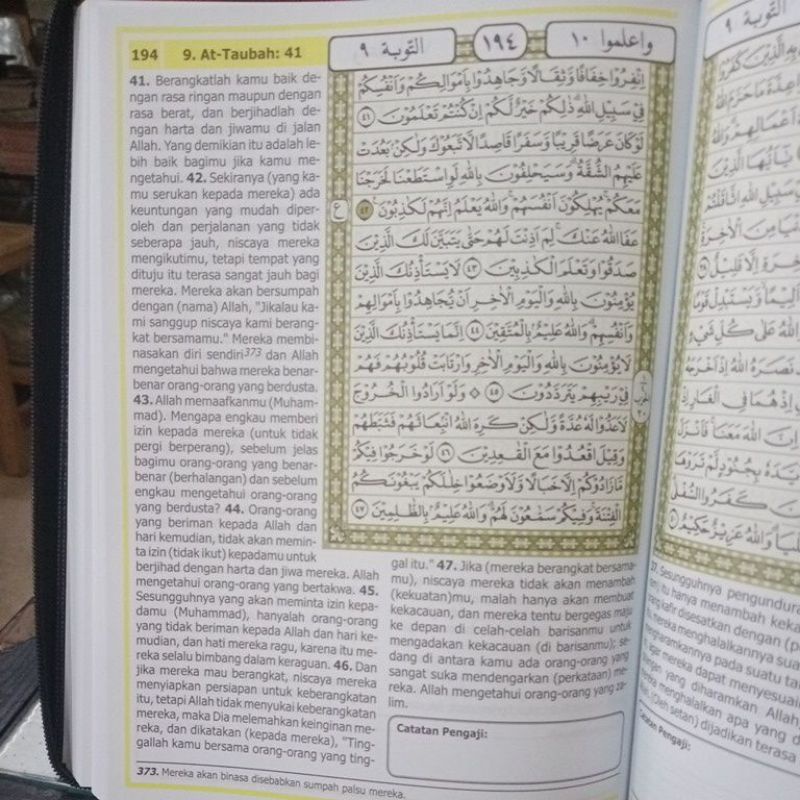 194 9. At-Taubah: 41
41. Berangkatlah kamu baik de-
ngan rasa ringan maupun dengan
rasa berat, dan berjihadlah de-
ngan harta dan jiwamu di jalan
Allah. Yang demikian itu adalah le-
bih baik bagimu jika kamu me-
ngetahui. 42. Sekiranya (yang ka-
mu serukan kepada mereka) ada
keuntungan yang mudah diper-
oleh dan perjalanan yang tidak
seberapa jauh, niscaya mereka
mengikutimu, tetapi tempat yang
dituju itu terasa sangat jauh bagi
mereka. Mereka akan bersumpah
dengan (nama) Allah, "Jikalau ka-
mi sanggup niscaya kami berang-
kat bersamamu." Mereka membi-
nasakan diri sendiri373 dan Allah
mengetahui bahwa mereka benar-
benar orang-orang yang berdusta.
43. Allah memaafkanmu (Muham-
mad). Mengapa engkau memberi
izin kepada mereka (untuk tidak
pergi berperang), sebelum jelas
bagimu orang-orang yang benar-
benar (berhalangan) dan sebelum
engkau mengetahui orang-orang
yang berdusta? 44. Orang-orang
yang beriman kepada Allah dan
hari kemudian, tidak akan memin-
ta izin (tidak ikut) kepadamu untuk
berjihad dengan harta dan jiwa mereka. Allah
mengetahui orang-orang yang bertakwa. 45.
Sesungguhnya yang akan meminta izin kepa-
damu (Muhammad), hanyalah orang-orang
yang tidak beriman kepada Allah dan hari ke-
mudian, dan hati mereka ragu, karena itu me-
reka selalu bimbang dalam keraguan. 46. Dan
jika mereka mau berangkat, niscaya mereka
menyiapkan persiapan untuk keberangkatan
itu, tetapi Allah tidak menyukai keberangkatan
mereka, maka Dia melemahkan keinginan me-
reka, dan dikatakan (kepada mereka), "Ting-
gallah kamu bersama orang-orang yang ting-
gal itu." 47. Jika (mereka berangkat bersama-
mu), niscaya mereka tidak akan menambah
(kekuatan)mu, malah hanya akan membuat
kekacauan, dan mereka tentu bergegas maju
ke depan di celah-celah barisanmu untuk
mengadakan kekacauan (di barisanmu); se-
dang di antara kamu ada orang-orang yang
sangat suka mendengarkan (perkataan) me-
reka. Allah mengetahui orang-orang yang za-
lim.
Catatan Pengaji:
373. Mereka akan binasa disebabkan sumpah palsu mereka.
واعلموا ١٠ ١٩٤ التوبة ٩
اِنْفِرُوْا خِفَافًا وَّثِقَالًا وَّجَاهِدُوْا بِاَمْوَالِكُمْ وَاَنْفُسِكُمْ
فِيْ سَبِيْلِ اللّٰهِ ۗذٰلِكُمْ خَيْرٌ لَّكُمْ اِنْ كُنْتُمْ تَعْلَمُوْنَ ٤١
لَوْ كَانَ عَرَضًا قَرِيْبًا وَّسَفَرًا قَاصِدًا لَّاتَّبَعُوْكَ وَلٰكِنْۢ بَعُدَتْ
عَلَيْهِمُ الشُّقَّةُۗ وَسَيَحْلِفُوْنَ بِاللّٰهِ لَوِ اسْتَطَعْنَا لَخَرَجْنَا
مَعَكُمْۚ يُهْلِكُوْنَ اَنْفُسَهُمْۚ وَاللّٰهُ يَعْلَمُ اِنَّهُمْ لَكٰذِبُوْنَ ٤٢ ع
عَفَا اللّٰهُ عَنْكَۚ لِمَ اَذِنْتَ لَهُمْ حَتّٰى يَتَبَيَّنَ لَكَ الَّذِيْنَ
صَدَقُوْا وَتَعْلَمَ الْكٰذِبِيْنَ ٤٣ لَا يَسْتَأْذِنُكَ الَّذِيْنَ
يُؤْمِنُوْنَ بِاللّٰهِ وَالْيَوْمِ الْاٰخِرِ اَنْ يُّجَاهِدُوْا بِاَمْوَالِهِمْ
وَاَنْفُسِهِمْۗ وَاللّٰهُ عَلِيْمٌۢ بِالْمُتَّقِيْنَ ٤٤ اِنَّمَا يَسْتَأْذِنُكَ الَّذِيْنَ
لَا يُؤْمِنُوْنَ بِاللّٰهِ وَالْيَوْمِ الْاٰخِرِ وَارْتَابَتْ قُلُوْبُهُمْ فَهُمْ
فِيْ رَيْبِهِمْ يَتَرَدَّدُوْنَ ٤٥ ۞ وَلَوْ اَرَادُوا الْخُرُوْجَ
لَاَعَدُّوْا لَهٗ عُدَّةً وَّلٰكِنْ كَرِهَ اللّٰهُ انْۢبِعَاثَهُمْ فَثَبَّطَهُمْ
وَقِيْلَ اقْعُدُوْا مَعَ الْقٰعِدِيْنَ ٤٦ لَوْ خَرَجُوْا فِيْكُمْ
مَّا زَادُوْكُمْ اِلَّا خَبَالًا وَّلَا۟اَوْضَعُوْا خِلٰلَكُمْ يَبْغُوْنَكُمُ
الْفِتْنَةَۚ وَفِيْكُمْ سَمّٰعُوْنَ لَهُمْۗ وَاللّٰهُ عَلِيْمٌۢ بِالظّٰلِمِيْنَ ٤٧
التوبة ٩
37. Sesungguhnya pengundura
hanya menambah keka
kafir disesatkan dengan (p
mereka menghalalkannya sua
pada suatu ta
agar mereka dapat menyesuai
yang diharamkan Allah,
menghalalkan apa yang d
(Oleh setan) dijadikan terasa
Catatan Pengaji: